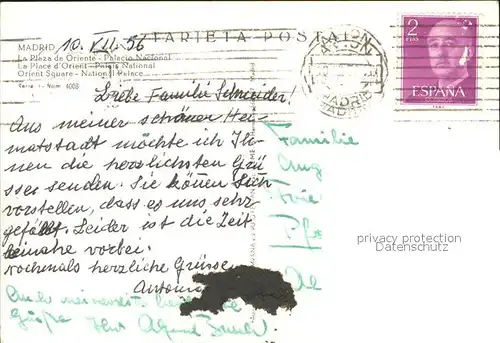 TARJETA POSTAL
MADRID 10. XII. 56
La Plaza de Oriente - Palacio Nacional
La Place d'Orient - Palais National
Orient Square - National Palace
Serie Núm. 4008
2
PTAS
ESPAÑA
MADRID
Liebe Familie Schneider.
Aus meiner schöner Hei-
matstadt möchte ich Ih-
nen die herzlichsten Grü-
sse senden. Sie können Sich
vorstellen, dass es uns sehr
gefällt. Leider ist die Zeit
beinahe vorbei.
nochmals herzliche Grüsse
Antonio
Auch meinerseits
Grüße Ihr
Familie
Aug
privacy protection
Datenschutz